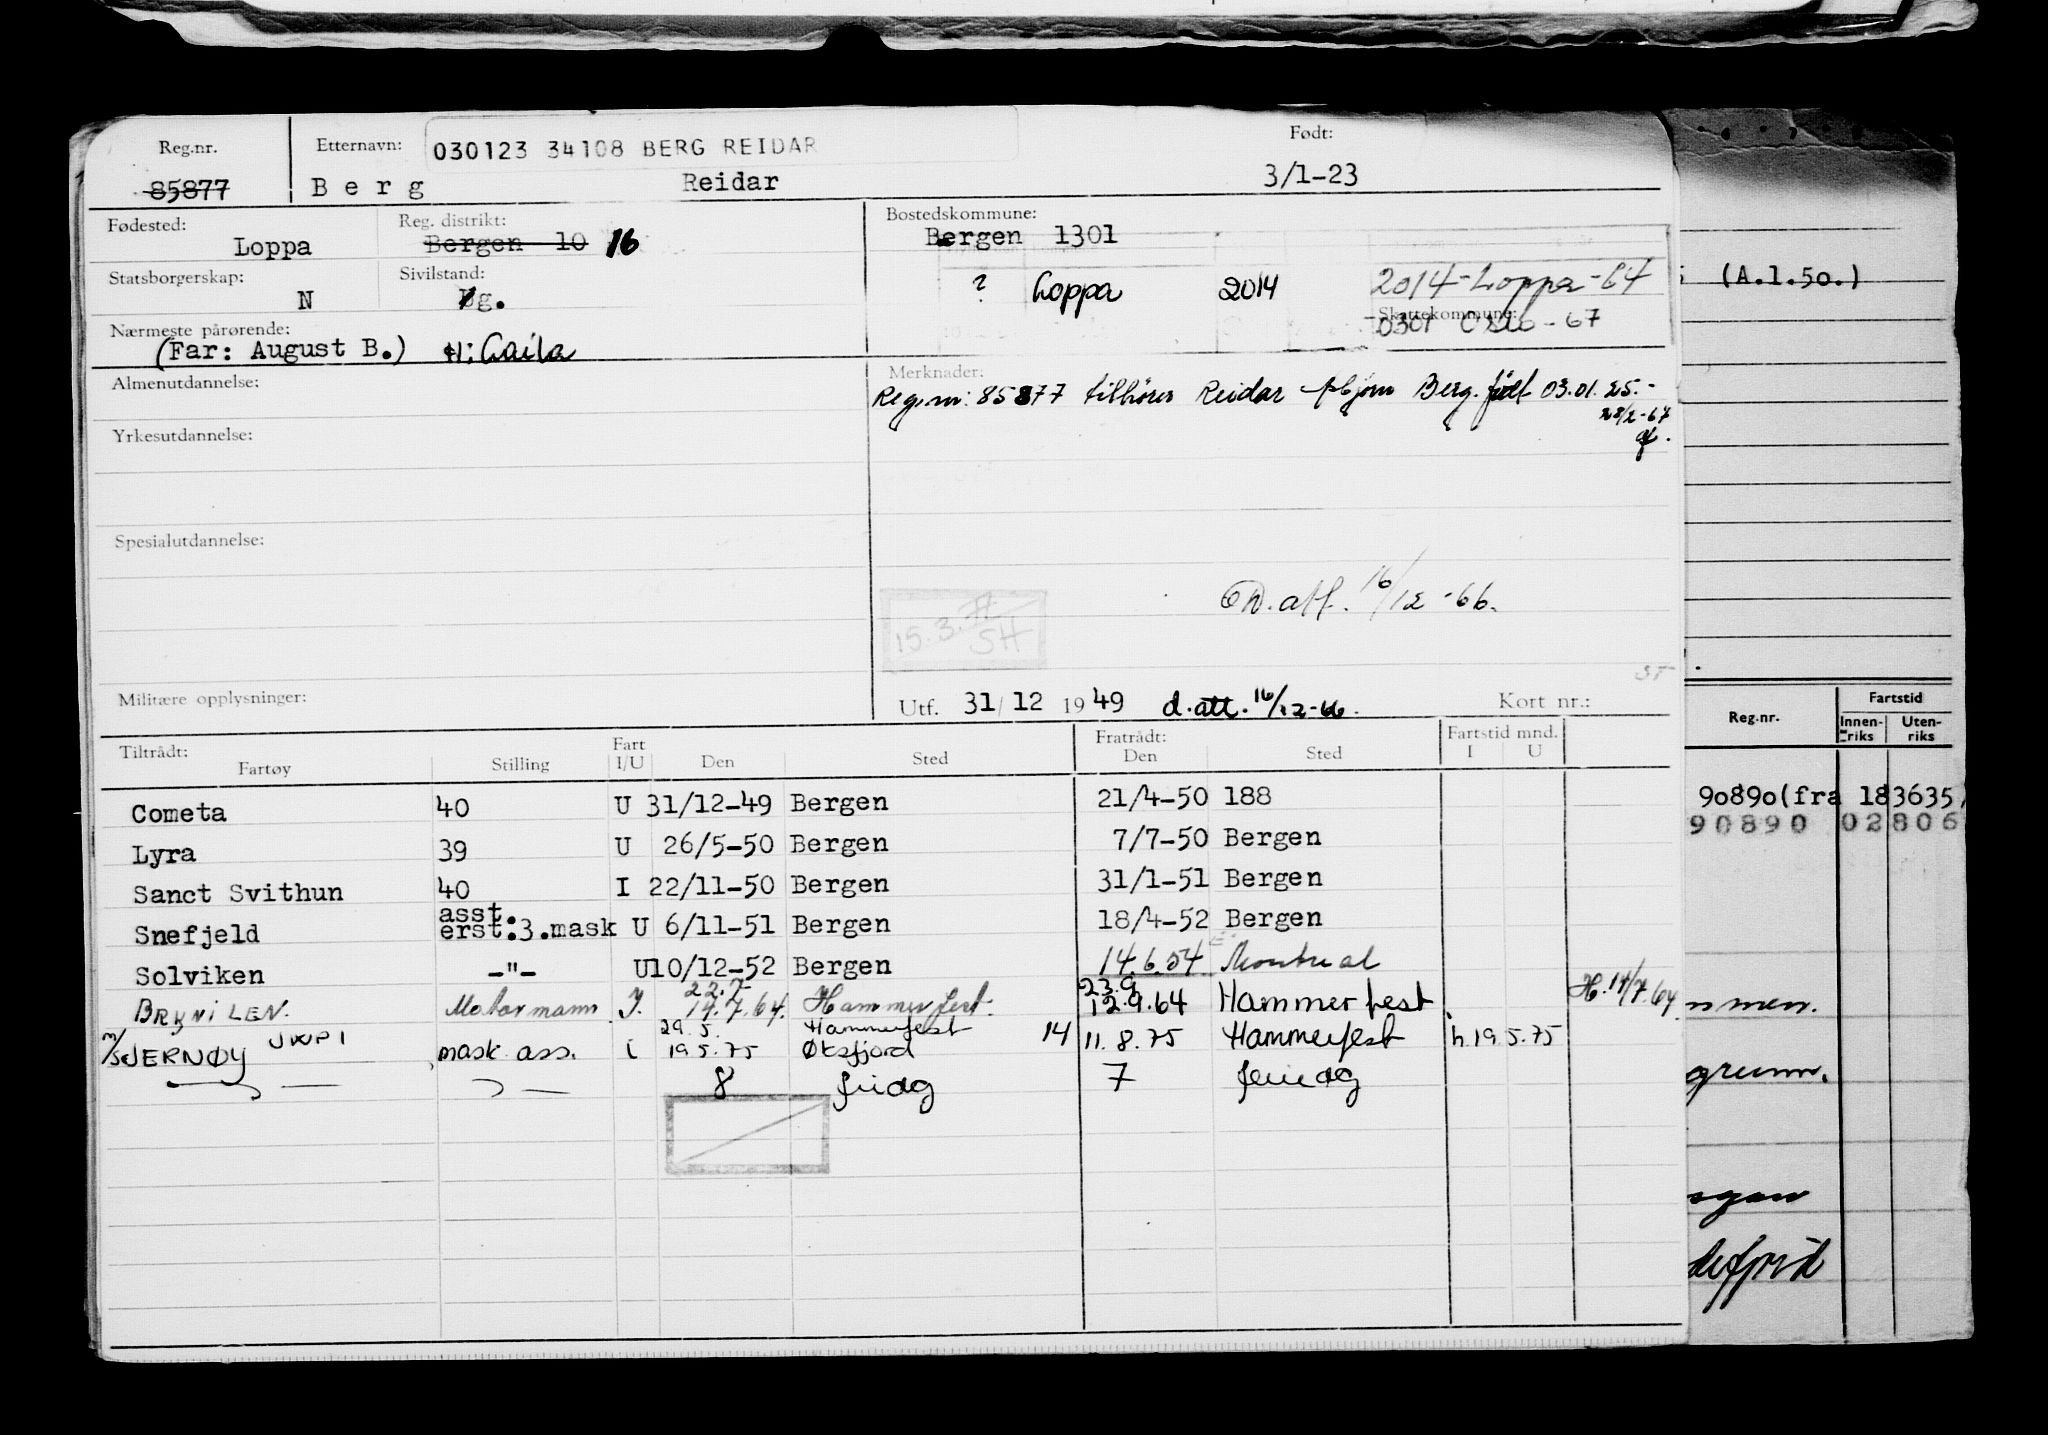 Reg.nr. Etternavn: 030123 34108 BERG REIDAR Født:
85877 Berg Reidar 3/1-23
Fødested: Loppa Reg. distrikt: Bergen 10 16 Bostedskommune: Bergen 1301
Statsborgerskap: N Sivilstand: g. ? Loppa 2014 2014-Loppa-64
Skattekommune:
0301 Oslo - 67
Nærmeste pårørende: (Far: August B.) H: Laila
Almenutdannelse: Merknader:
Reg.nr: 85877 tilhører Reidar Berg. født 03.01.25.-
28/2-67
Yrkesutdannelse:
Spesialutdannelse:
D.att. 16/12-66.
15.3.
SH
Militære opplysninger: Utf. 31/12 1949 d.att. 16/12-66. Kort nr.:
Tiltrådt: Fartøy Stilling Fart I/U Den Sted Fratrådt: Den Sted Fartstid mnd. I U
Cometa 40 U 31/12-49 Bergen 21/4-50 188
Lyra 39 U 26/5-50 Bergen 7/7-50 Bergen
Sanct Svithun 40 I 22/11-50 Bergen 31/1-51 Bergen
Snefjeld asst. erst.3.mask U 6/11-51 Bergen 18/4-52 Bergen
Solviken -"- U 10/12-52 Bergen 14.6.54 Montreal
22.7 23.9
BRYNILEN. Motormann I. 14.7.64. Hammerfest. 12.9.64 Hammerfest H.14/7.64
29.5. Hammerfest
M/S JERNØY JWPI mask. ass. i 19.5.75 Øksfjord 14 11.8.75 Hammerfest h.19.5.75
8 7
(A.l.50.)
Reg.nr. Fartstid
Innen-riks Uten-riks
90890(fra 183635)
90890 02806
mmen.
grunn.